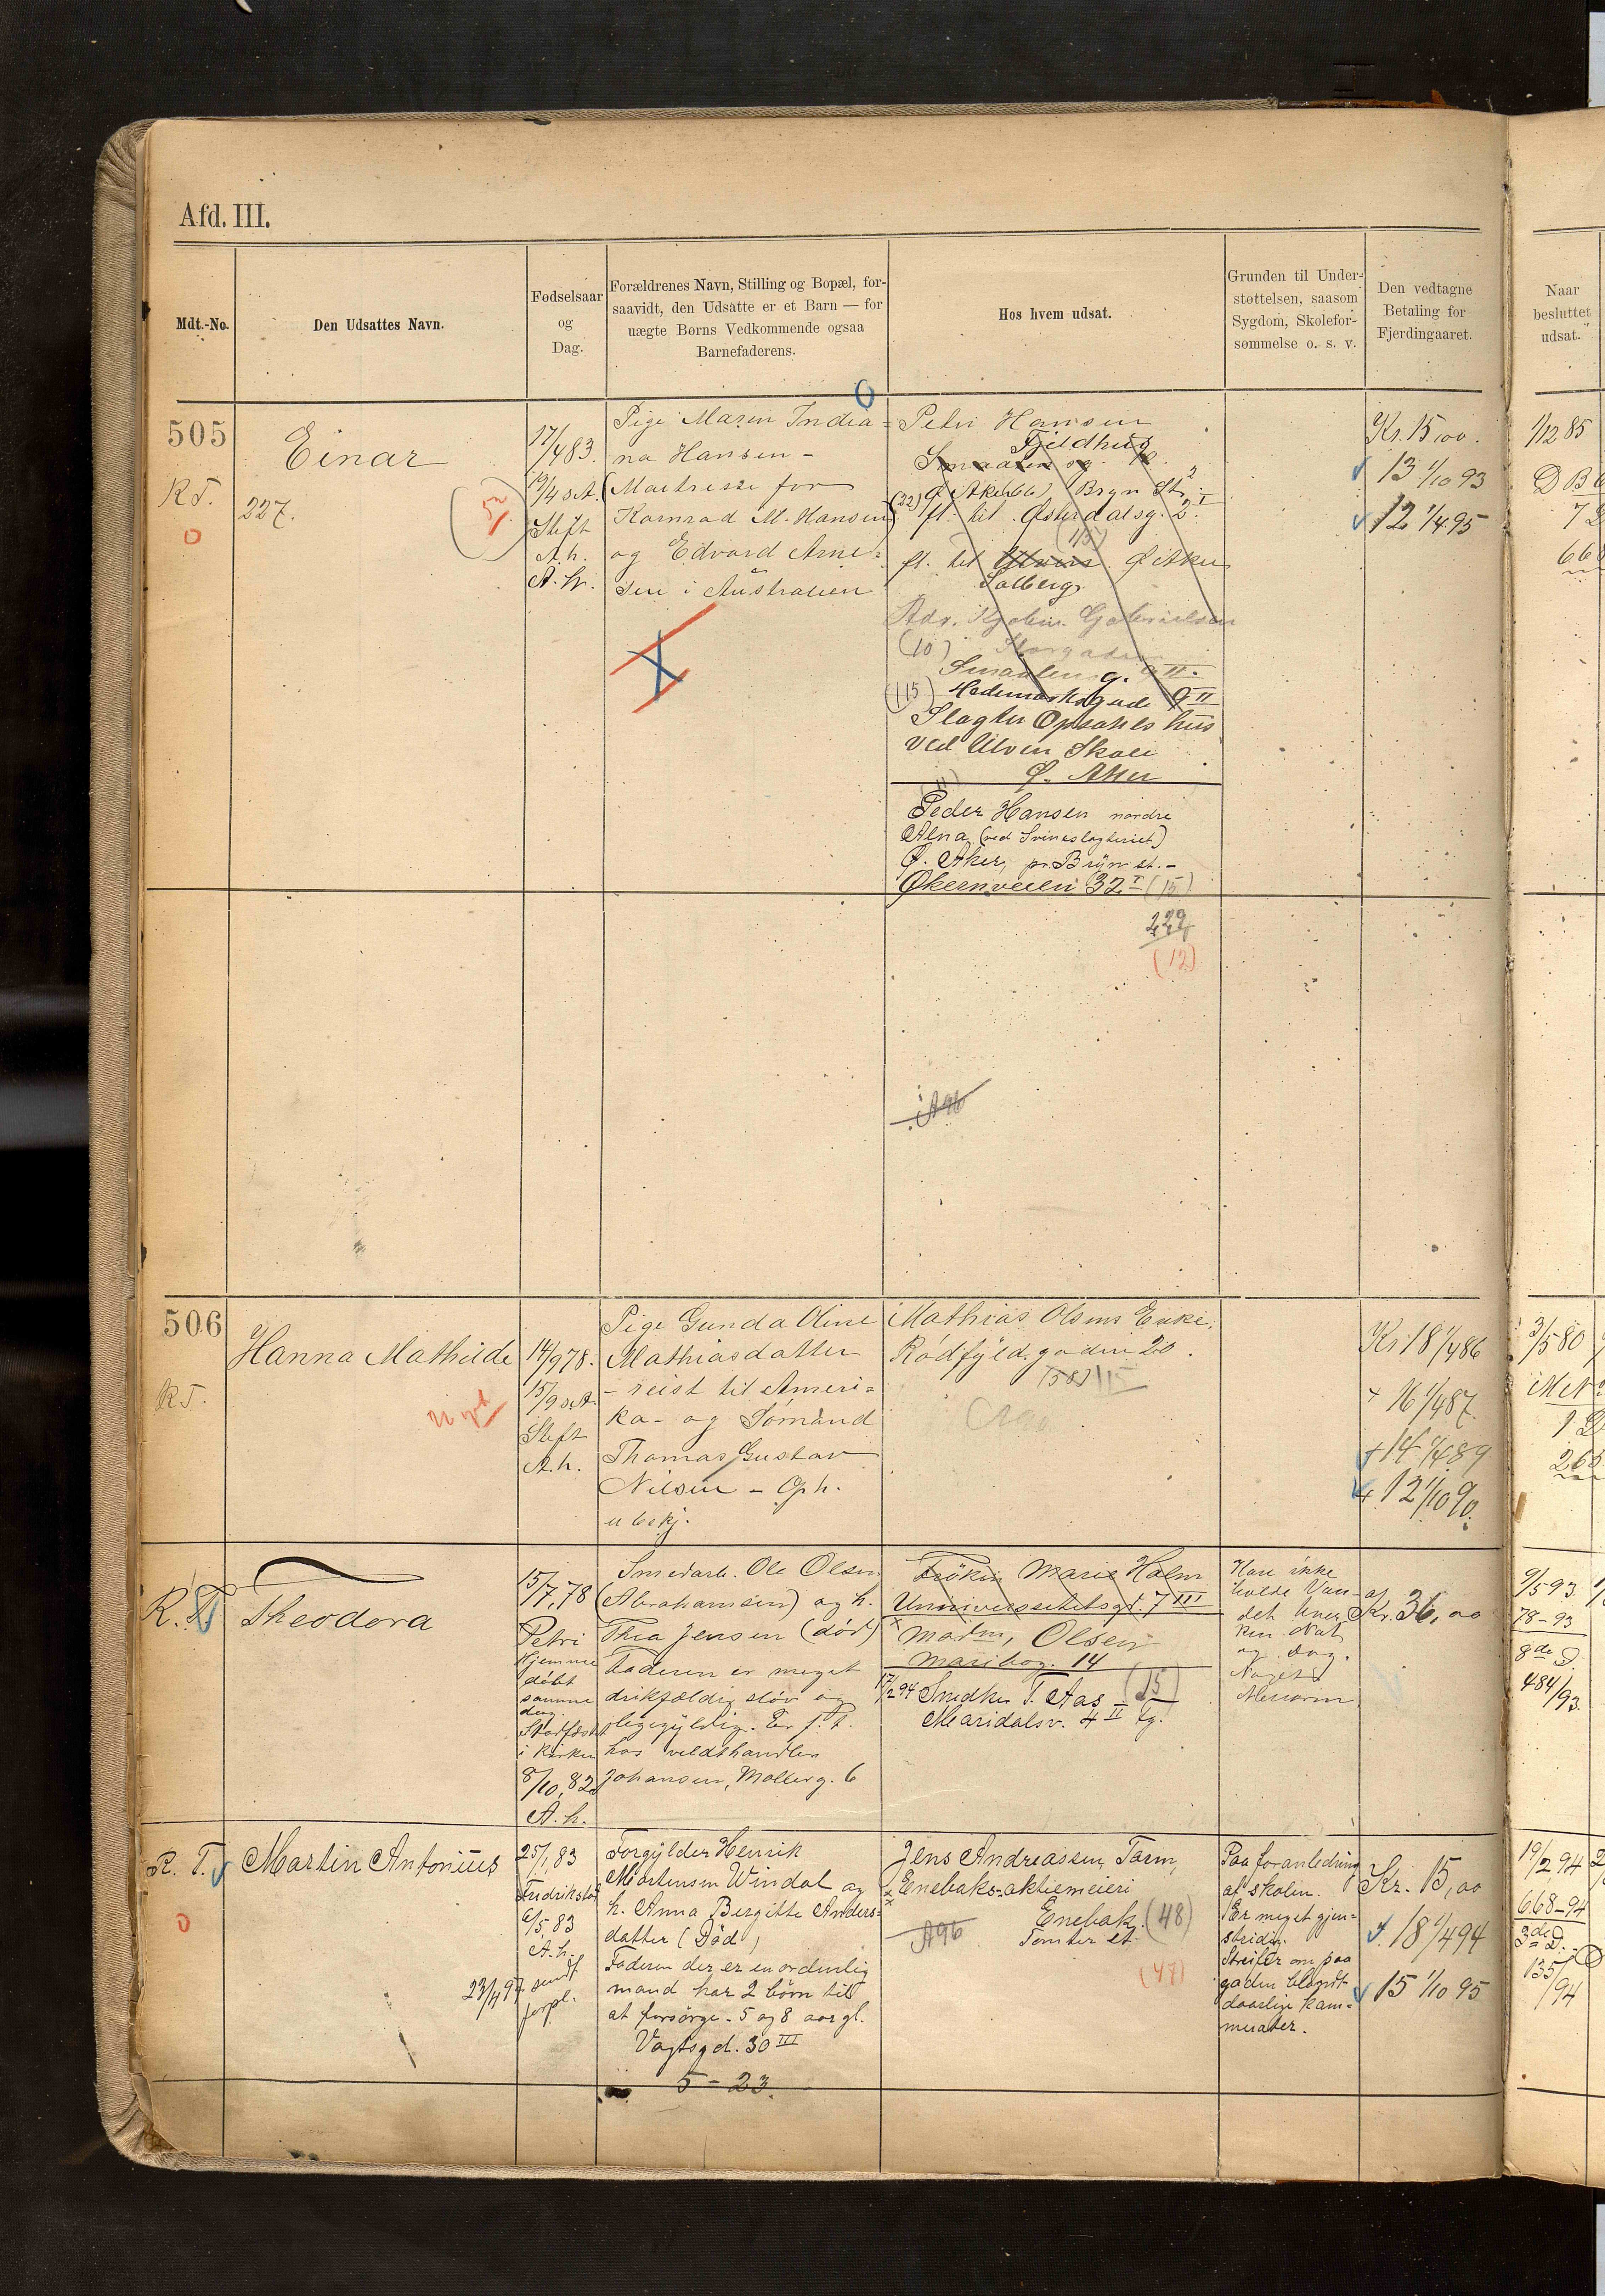 Afd. III.
Mdt.-No.
Den Udsattes Navn.
Fødselsaar
og
Dag.
Forældrenes Navn, Stilling og Bopæl, for-
saavidt, den Udsatte er et Barn — for
uægte Børns Vedkommende ogsaa
Barnefaderens.
Hos hvem udsat.
Grunden til Under-
støttelsen, saasom
Sygdom, Skolefor-
sømmelse o. s. v.
Den vedtagne
Betaling for
Fjerdingaaret.
Naar
besluttet
udsat.
505
R T.
Einar
227.
17/4 83.
19/4 s.A.
Stift
A. h.
Pige Maren India=
na Hansen -
(Maitresse for
Konrad M. Hansen)
og Edvard Arne=
sen i Australien
Petri Hansen
Fjeldhus
Ø. Aker (66) Bryn St.
(22) fl. til Østerdalsg. 2 I
(115)
fl. til Ulven Ø Aker
Solberg
Adr. Gabrielsen
(10) Storgaden
Smaalensg. 9 II.
(115) Hedemarksgade 9 II
Slagter Opsahls hus
ved Ulven Skole
Ø. Aker
Peder Hansen nordre
Alna (ved Svineslagteriet)
Ø. Aker, pr Bryn st.-
Økernveien 32 I (15)
229
(12)
A96
Kr. 15,00.
13 1/10 93
12 1/4 95
1/12 85
506
R T.
Hanna Mathilde
14/9 78.
15/9 s.A.
Stift
A. h.
Pige Gunda Oline
Mathiasdatter
- reist til Ameri=
ka - og Sømand
Thomas Gustav
Nilsen - Oph.
ubekj.
Mathias Olsens Enke.
Rødfyldgaden 20.
(58) 115
Kr 18 1/4 86
+ 16 1/4 87.
+ 14 1/4 89
+ 12 1/10 90.
3/5 80
R. T.
Theodora
15/7, 78
Petri
Hjemme
døbt
samme
dag.
Stadfæst
i Kirken
8/10, 82
A. h.
Smedarb. Ole Olsen
(Abrahamsen) og h.
Thea Jensen (død)
Faderen er meget
drikfældig sløv og
ligegyldig. Er f. T.
hos veldthandler
Johansen, Møllerg. 6
Frøken Marie Holm
Universitetsgt. 7 III
Madm, Olsen
Maribog. 14
17/2 94 Snedker T. Aas (15)
Maridalsv. 4 II
Kan ikke
holde Van-
det hver-
ken Nat
og Dag.
Noget
Kr. 36,00
9/5 93
78-93
8de D.
484/93.
R. T.
Martin Antonius
25/1, 83
Fredrikstad
6/5, 83
A. h.
23/4 97 sendt
forpl.
Forgylder Henrik
Mortensen Windal og
h. Anna Birgitte Anders=
datter (Død)
Faderen der er en ordenlig
mand har 2 børn til
at forsørge - 5 og 8 aar gl.
Vogtsgd. 30 III
5 - 23.
Jens Andreassen, Torm,
Enebaks-aktiemeieri
Enebak (48)
A96 Tomter st.
(47)
Paa foranledning
af skolen.
Er meget gjen=
stridig.
Streifer om paa
gaden blandt
daarlige kam=
merater.
Kr. 15,00
18 1/4 94
15 1/10 95
19/2, 94
668-94
3de D.
135/94